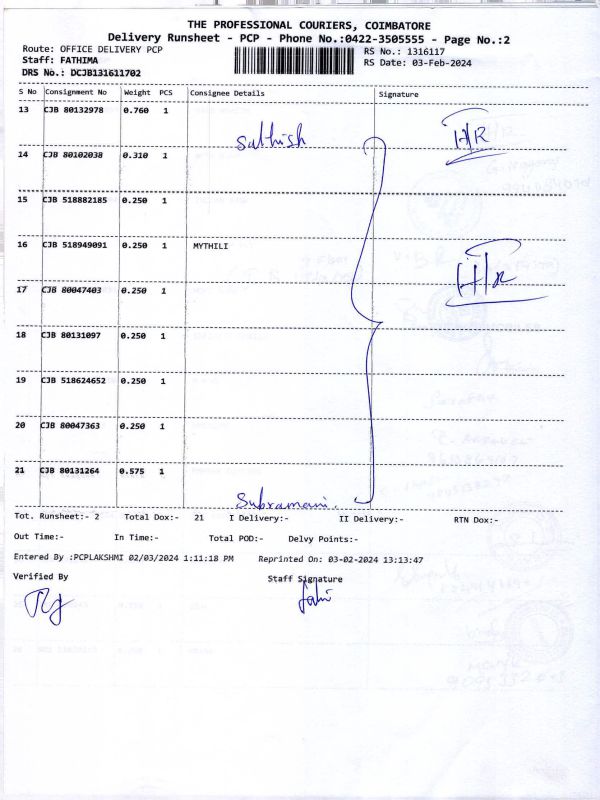 THE PROFESSIONAL COURIERS, COIMBATORE
Delivery Runsheet - PCP - Phone No.:0422-3505555 - Page No.:2
Route: OFFICE DELIVERY PCP
RS No.: 1316117
Staff: FATHIMA
RS Date: 03-Feb-2024
DRS No.: DCJB131611702
S No Consignment No Weight PCS Consignee Details Signature
13 CJB 80132978 0.760 1
Sathish
14 CJB 80102038 0.310 1
15 CJB 518882185 0.250 1
16 CJB 518949091 0.250 1 MYTHILI
17 CJB 80047403 0.250 1
18 CJB 80131097 0.250 1
19 CJB 518624652 0.250 1
20 CJB 80047363 0.250 1
21 CJB 80131264 0.575 1
Subramani.
Tot. Runsheet:- 2 Total Dox:- 21 I Delivery:- II Delivery:- RTN Dox:-
Out Time:- In Time:- Total POD:- Delvy Points:-
Entered By :PCPLAKSHMI 02/03/2024 1:11:18 PM Reprinted On: 03-02-2024 13:13:47
Verified By Staff Signature